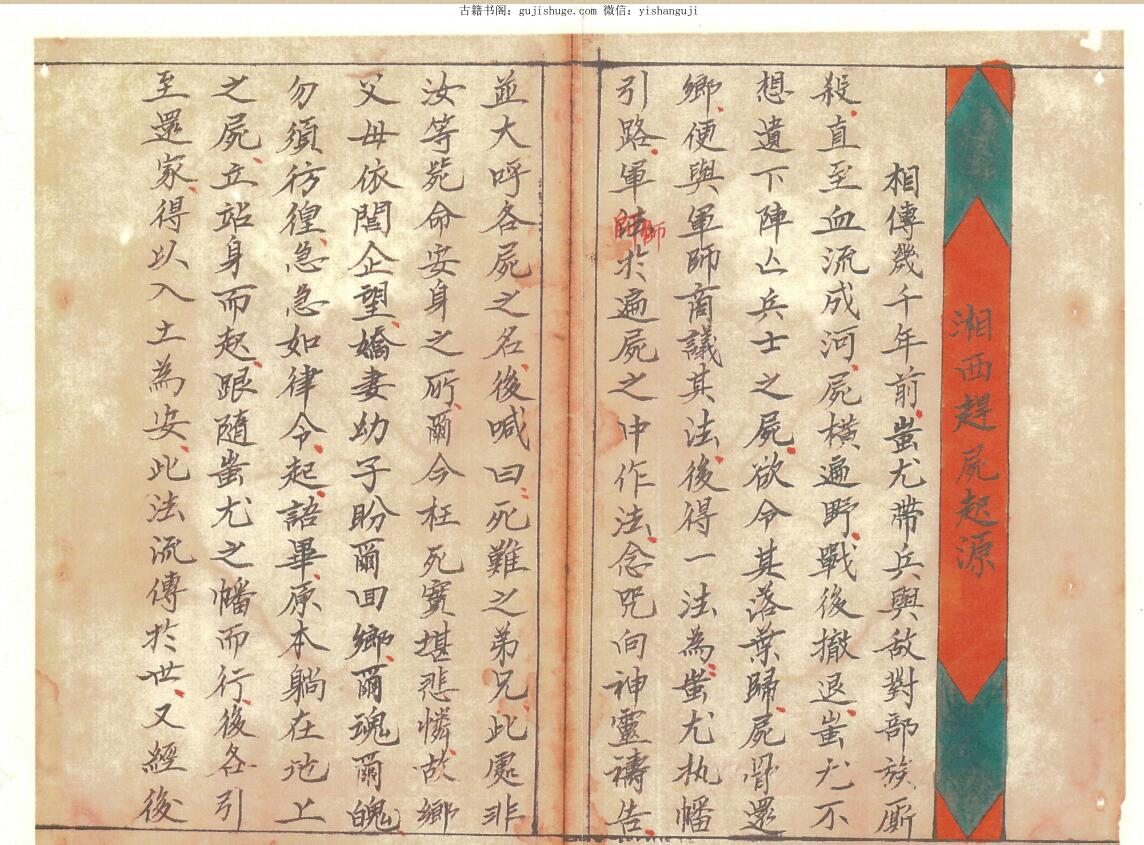 古籍书阁：gujishuge.com 微信：yishanguji
湘西趕屍起源
相傳幾千年前蚩尤帶兵與敌對部族厮
殺直至血流成河屍橫遍野戰後撤退蚩尤不
想遺下陣亾兵士之屍欲令其落葉歸屍骨還
鄉便與軍師商議其法後得一法為蚩尤执幡
引路軍師師於遍屍之中作法念咒向神靈禱告
並大呼各屍之名後喊曰死難之弟兄此處非
汝等斃命安身之所爾今枉死實堪悲憐故鄉
父母依閭企望嬌妻幼子盼爾回鄉爾魂爾魄
勿須彷徨急急如律令起語畢原本躺在地上
之屍立站身而起跟随蚩尤之幡而行後各引
至還家得以入土為安此法流傳於世又經後